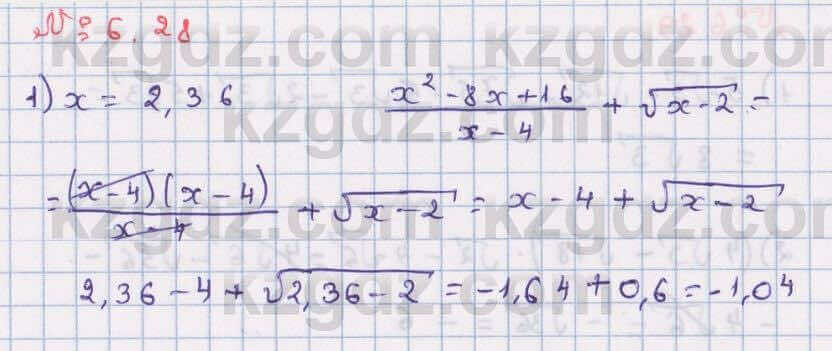 № 6.28
1) x = 2,36 (x² - 8x + 16)/(x - 4) + √(x - 2) =
= ((x - 4)(x - 4))/(x - 4) + √(x - 2) = x - 4 + √(x - 2)
2,36 - 4 + √(2,36 - 2) = -1,64 + 0,6 = -1,04
kzgdz.com kzgdz.com
kzgdz.com kzgdz.com
kzgdz.com kzgdz.com
kzgdz.com kzgdz.com